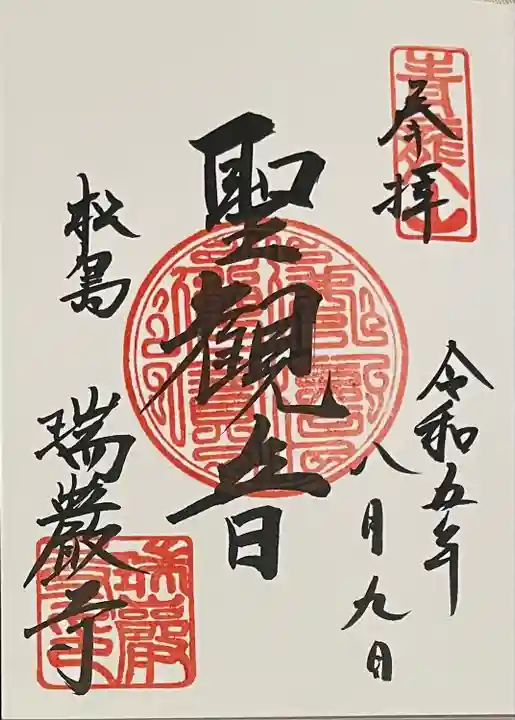 奉拝
青龍山
令和五年
八月九日
聖観音
松島
瑞巌寺